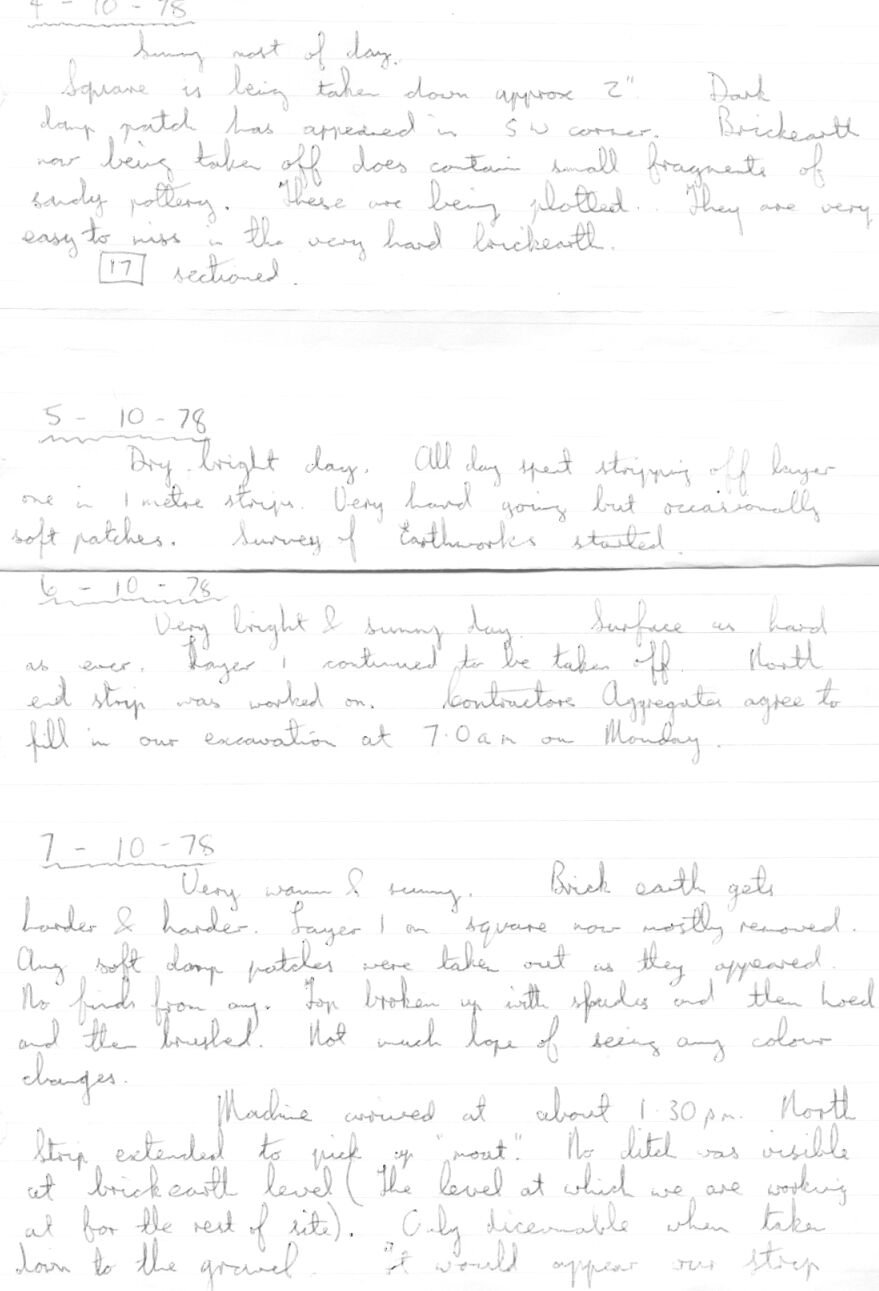 4 - 10 - 78
Sunny most of day.
Square is being taken down approx 2" Dark
damp patch has appeared in SW corner. Brickearth
now being taken off does contain small fragments of
sandy pottery. These are being plotted. They are very
easy to miss in the very hard brickearth.
17 sectioned.
5 - 10 - 78
Dry bright day. All day spent stripping off layer
one in 1 metre strips. Very hard going but occasionally
soft patches. Survey of Earthworks started.
6 - 10 - 78
Very bright & sunny day. Surface as hard
as ever. Layer 1 continued to be taken off. North
end strip was worked on. Contractors Aggregates agree to
fill in our excavation at 7.0 am on Monday.
7 - 10 - 78
Very warm & sunny. Brick earth gets
harder & harder. Layer 1 on square now mostly removed.
Any soft damp patches were taken out as they appeared.
No finds from any. Top broken up with spades and then hoed
and then brushed. Not much hope of seeing any colour
changes.
Machine arrived at about 1.30 pm. North
Strip extended to pick up "moat". No ditch was visible
at brickearth level (The level at which we are working
at for the rest of site). Only discernable when taken
down to the gravel. It would appear our strip